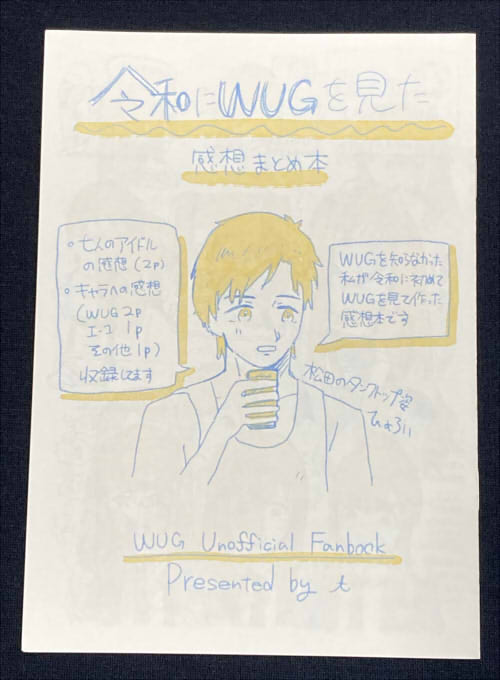 令和にWUGを見た
感想まとめ本
• 七人のアイドル
の感想 (2p)
• キャラへの感想
(WUG 2p
I-1 1p
その他 1p)
収録してます
WUGを知らなかった
私が令和に初めて
WUGを見て作った
感想本です
松田のタンクトップ姿
ひょろい
WUG Unofficial Fanbook
Presented by t